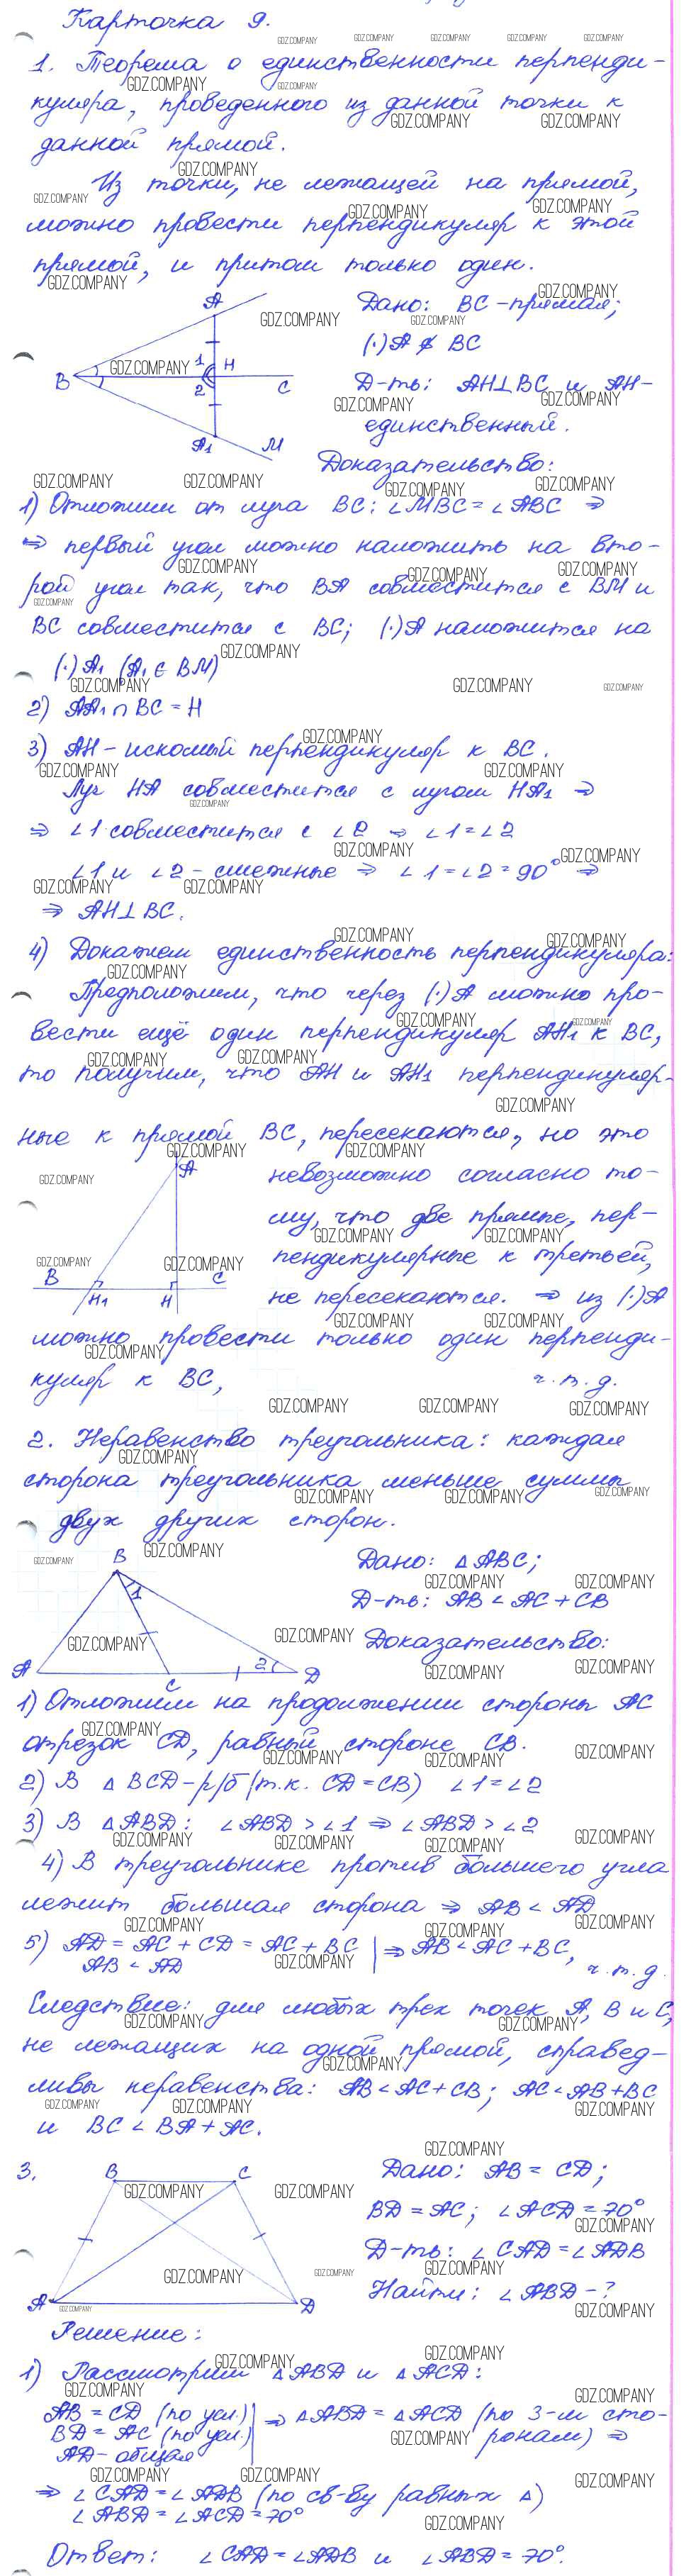 Карточка 9.
1. Теорема о единственности перпенди-
куляра, проведенного из данной точки к
данной прямой.
Из точки, не лежащей на прямой,
можно провести перпендикуляр к этой
прямой, и притом только один.
Дано: BC - прямая;
(·)A ∉ BC
Д-ть: AH⊥BC и AH-
единственный.
A
B
1
H
2
C
A₁
M
Доказательство:
1) Отложим от луча BC: ∠MBC = ∠ABC ⇒
⇒ первый угол можно наложить на вто-
рой угол так, что BA совместится с BM и
BC совместится с BC; (·)A наложится на
(·)A₁ (A₁ ∈ BM)
2) AA₁ ∩ BC = H
3) AH - искомый перпендикуляр к BC.
Луч HA совместится с лучом HA₁ ⇒
⇒ ∠1 совместится с ∠2 ⇒ ∠1 = ∠2
∠1 и ∠2 - смежные ⇒ ∠1 = ∠2 = 90° ⇒
⇒ AH⊥BC.
4) Докажем единственность перпендикуляра:
Предположим, что через (·)A можно про-
вести ещё один перпендикуляр AH₁ к BC,
то получим, что AH и AH₁ перпендикуляр-
ные к прямой BC, пересекаются, но это
невозможно согласно то-
му, что две прямые, пер-
пендикулярные к третьей,
не пересекаются. ⇒ из (·)A
A
B
H₁
H
C
можно провести только один перпенди-
куляр к BC,
ч.т.д.
2. Неравенство треугольника: каждая
сторона треугольника меньше суммы
двух других сторон.
Дано: △ABC;
Д-ть: AB < AC + CB
Доказательство:
B
1
A
C
2
D
1) Отложим на продолжении стороны AC
отрезок CD, равный стороне CB.
2) В △BCD - р/б (т.к. CD = CB) ∠1 = ∠2
3) В △ABD: ∠ABD > ∠1 ⇒ ∠ABD > ∠2
4) В треугольнике против большего угла
лежит большая сторона ⇒ AB < AD
5) AD = AC + CD = AC + BC | ⇒ AB < AC + BC,
AB < AD
ч.т.д.
Следствие: для любых трех точек A, B и C,
не лежащих на одной прямой, справед-
ливы неравенства: AB < AC + CB; AC < AB + BC
и BC < BA + AC.
3.
B
C
A
D
Дано: AB = CD;
BD = AC; ∠ACD = 70°
Д-ть: ∠CAD = ∠ADB
Найти: ∠ABD - ?
Решение:
1) Рассмотрим △ABD и △ACD:
AB = CD (по усл.)
BD = AC (по усл.)
AD - общая
⇒ △ABD = △ACD (по 3-м сто-
ронам) ⇒
⇒ ∠CAD = ∠ADB (по св-ву равных △)
∠ABD = ∠ACD = 70°
Ответ: ∠CAD = ∠ADB и ∠ABD = 70°.
GDZ.COMPANY